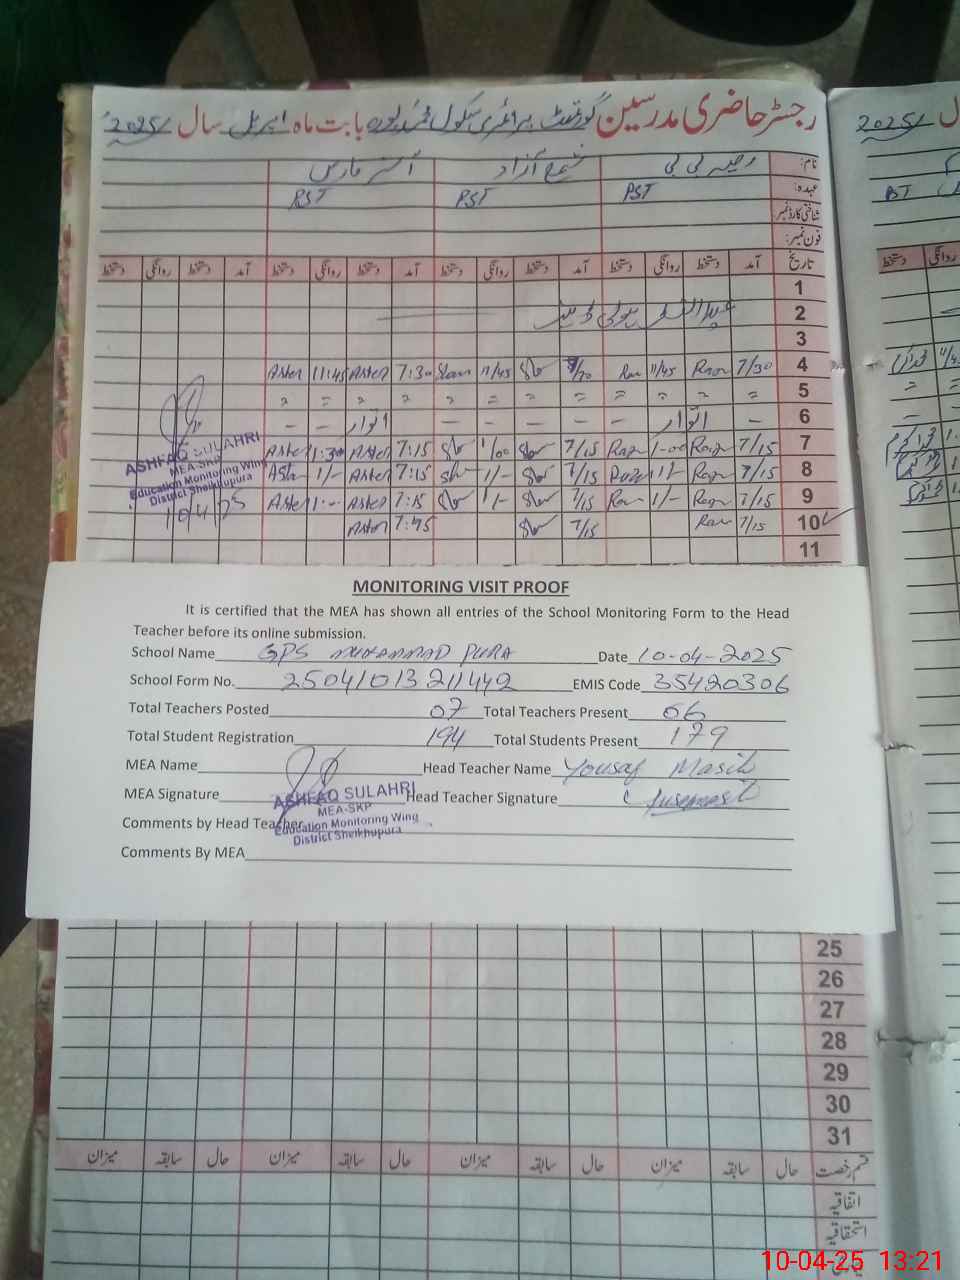 رجسٹر حاضری مدرسین گورنمنٹ پرائمری سکول محمد پورہ بابت ماہ اپریل سال 2025ء
نام: رضیہ بی بی شمع آزاد آسٹر فارس
عہدہ: PST PST PST
شناختی کارڈ نمبر:
فون نمبر:
تاریخ آمد دستخط روانگی دستخط آمد دستخط روانگی دستخط آمد دستخط روانگی دستخط آمد دستخط روانگی دستخط
1
2 عید الفطر
3
4 7/30 11/45 11/45 7:30 Aster 11:45 Aster
5 = = = = = = = = = = = =
6 – اتوار – – – – اتوار – –
7 7/15 1-00 7/15 1/00 7:15 Aster 1:30 Aster
8 7/15 1/- 7/15 1/- 7:15 Aster 1/- Aster
9 7/15 1/- 7/15 1/- 7:15 Aster 1:- Aster
10 7/15 7/15 7:45 Aster
11
ASHFAQ SULAHRI
MEA-SKP
Education Monitoring Wing
District Sheikhupura
10/4/25
MONITORING VISIT PROOF
It is certified that the MEA has shown all entries of the School Monitoring Form to the Head
Teacher before its online submission.
School Name GPS MUHAMMAD PURA Date 10-04-2025
School Form No. 25041013211442 EMIS Code 35420306
Total Teachers Posted 07 Total Teachers Present 06
Total Student Registration 194 Total Students Present 179
MEA Name Head Teacher Name Yousaf Masih
MEA Signature Head Teacher Signature
ASHFAQ SULAHRI
MEA-SKP
Education Monitoring Wing
District Sheikhupura
Comments by Head Teacher
Comments By MEA
25
26
27
28
29
30
31
قسم رخصت حال سابقہ میزان حال سابقہ میزان حال سابقہ میزان حال سابقہ میزان
اتفاقیہ
استحقاقیہ
سال 2025ء
PST
روانگی دستخط
10-04-25 13:21